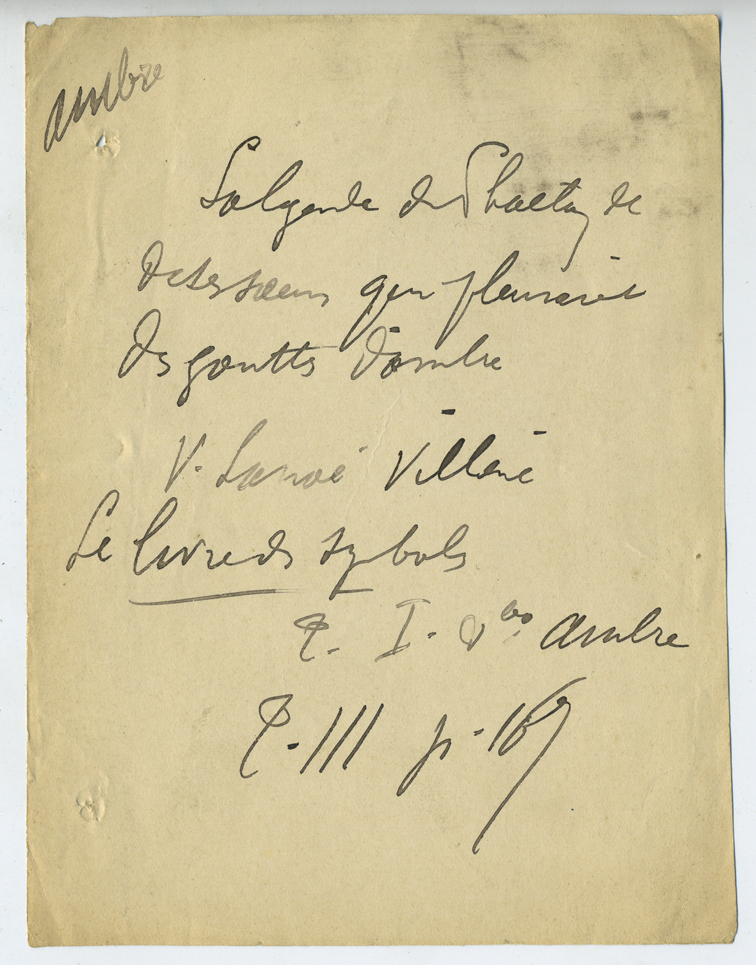 ambre
La légende de Phaeton de
de ses sœurs qui pleuraient
des gouttes d'ambre
V. Lanoë Villène
Le livre des symboles
T. I. Vbo. ambre
T. III p. 167